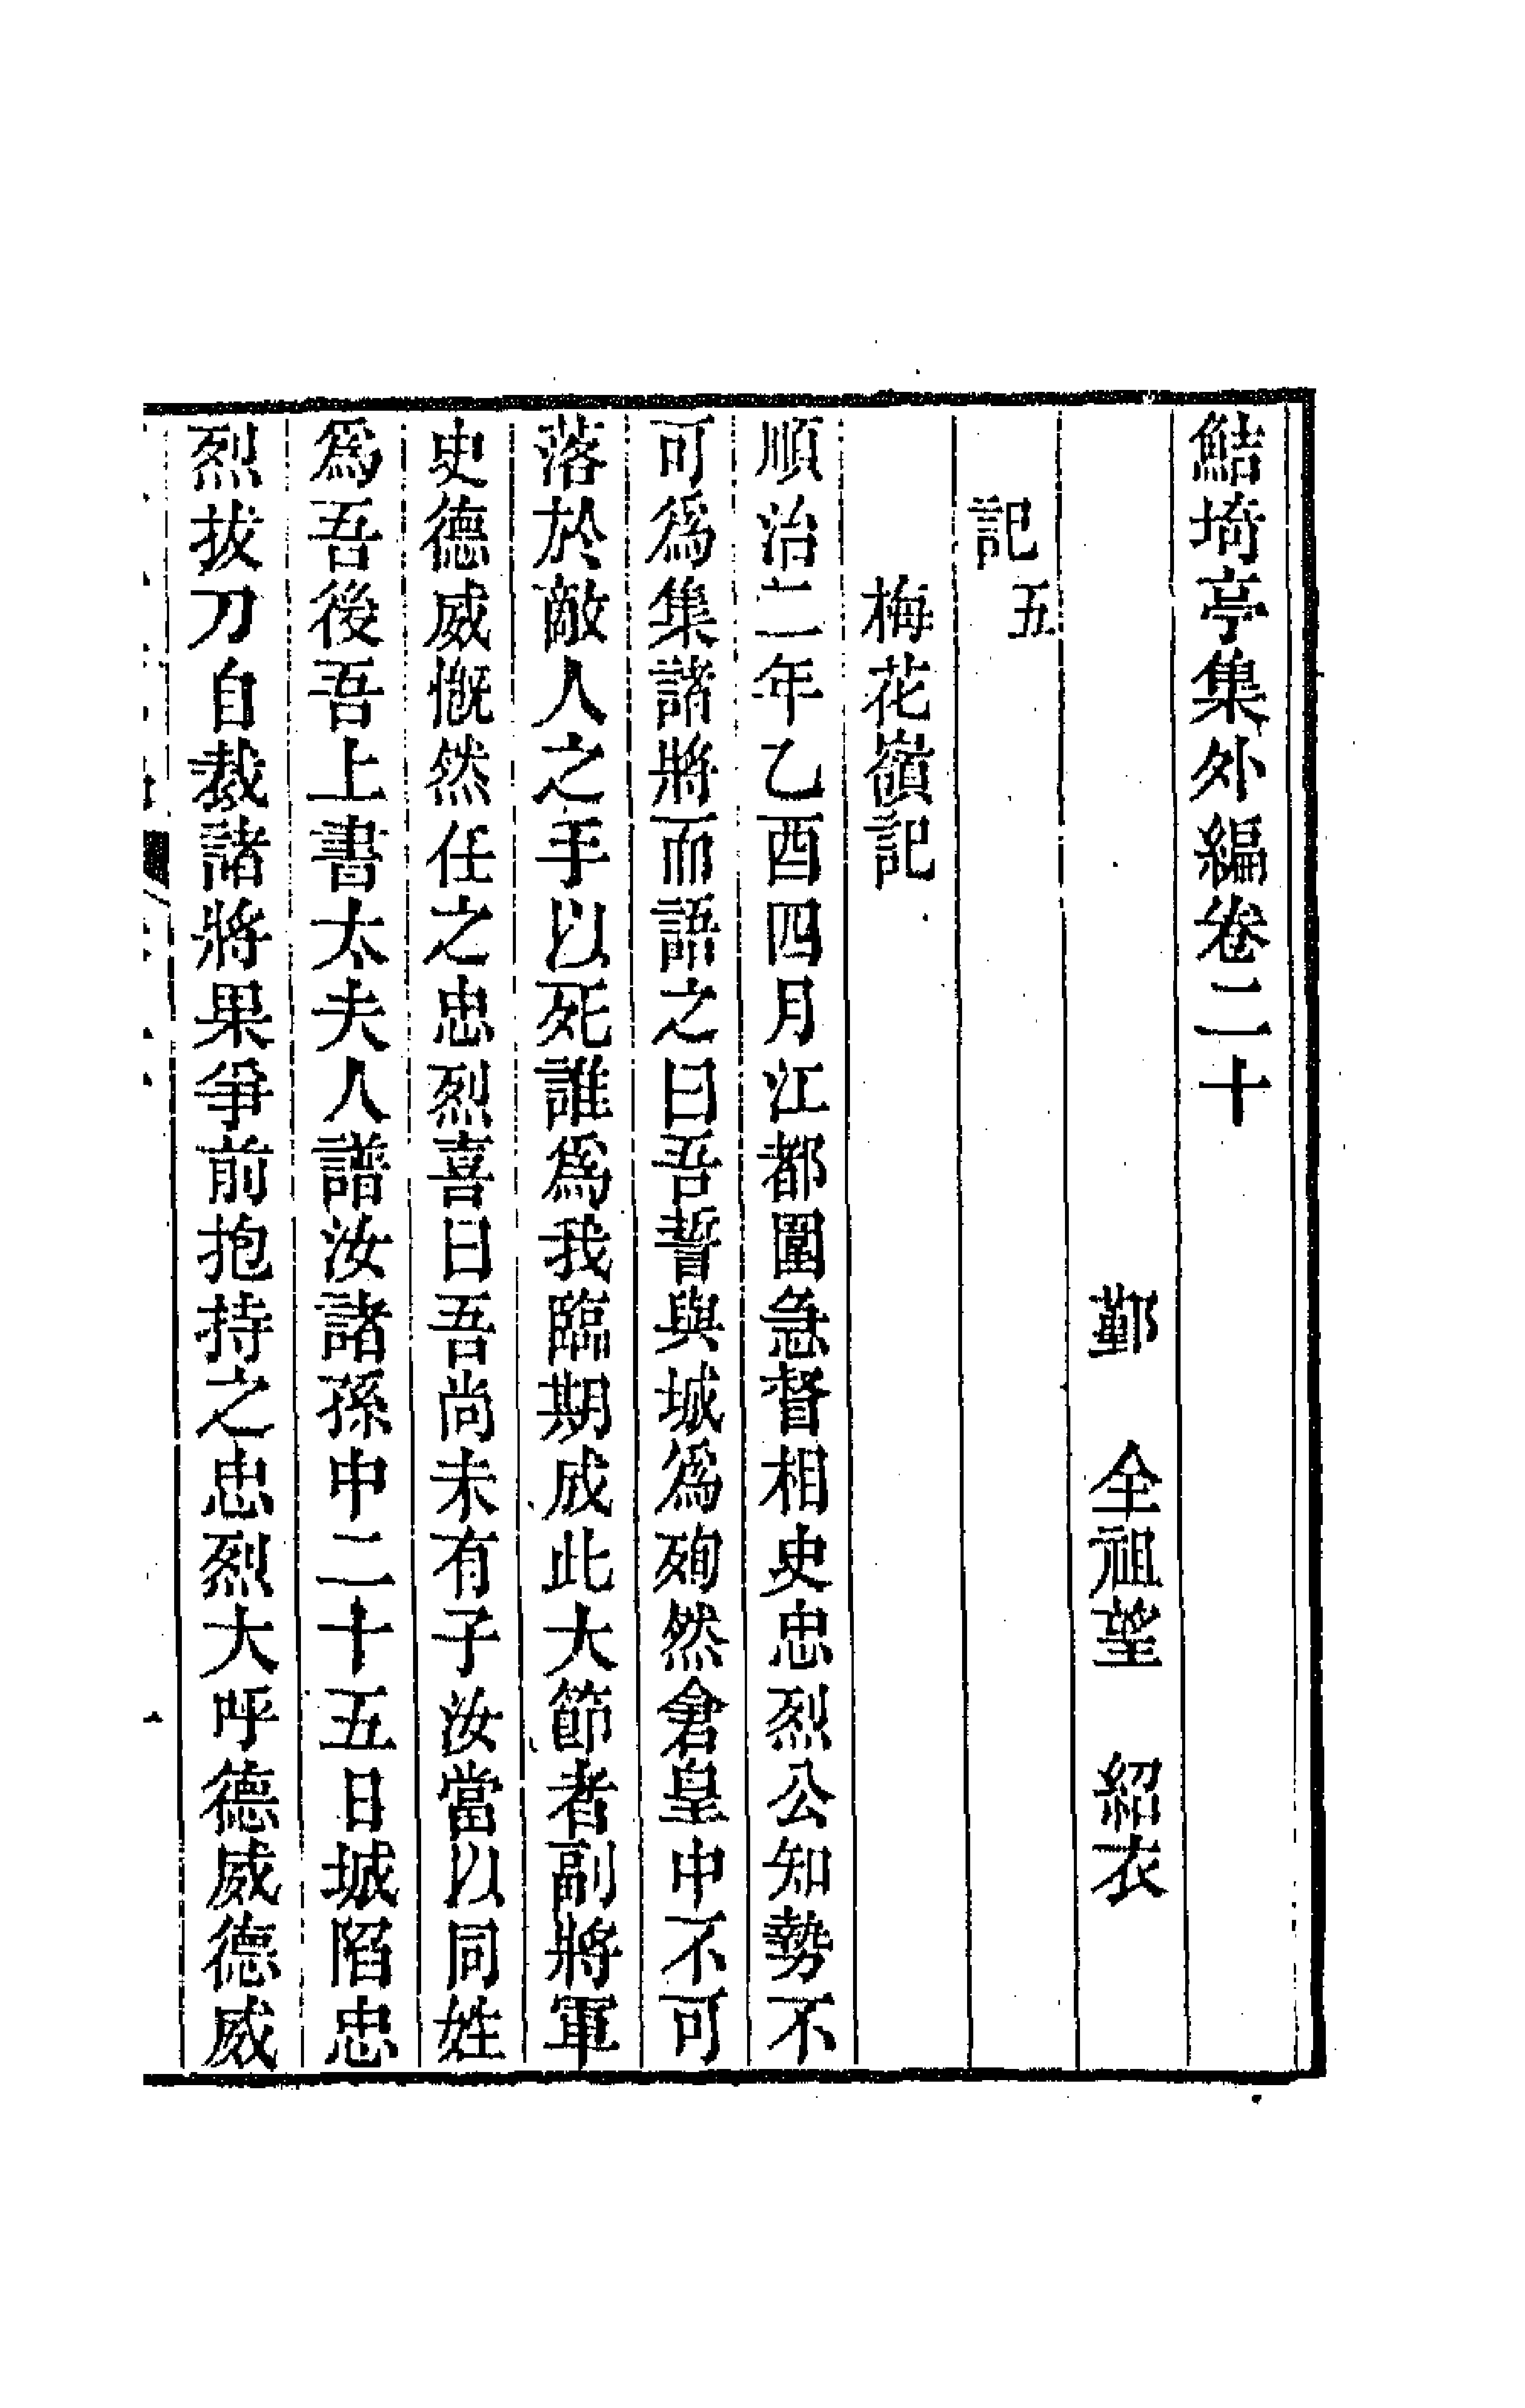 鮚埼亭集外編卷二十
鄞 全祖望 紹衣
記五
梅花嶺記
順治二年乙酉四月江都圍急督相史忠烈公知勢不
可爲集諸將而語之曰吾誓與城爲殉然倉皇中不可
落於敵人之手以死誰爲我臨期成此大節者副將軍
史德威慨然任之忠烈喜曰吾尚未有子汝當以同姓
爲吾後吾上書太夫人譜汝諸孫中二十五日城陷忠
烈拔刀自裁諸將果爭前抱持之忠烈大呼德威德威